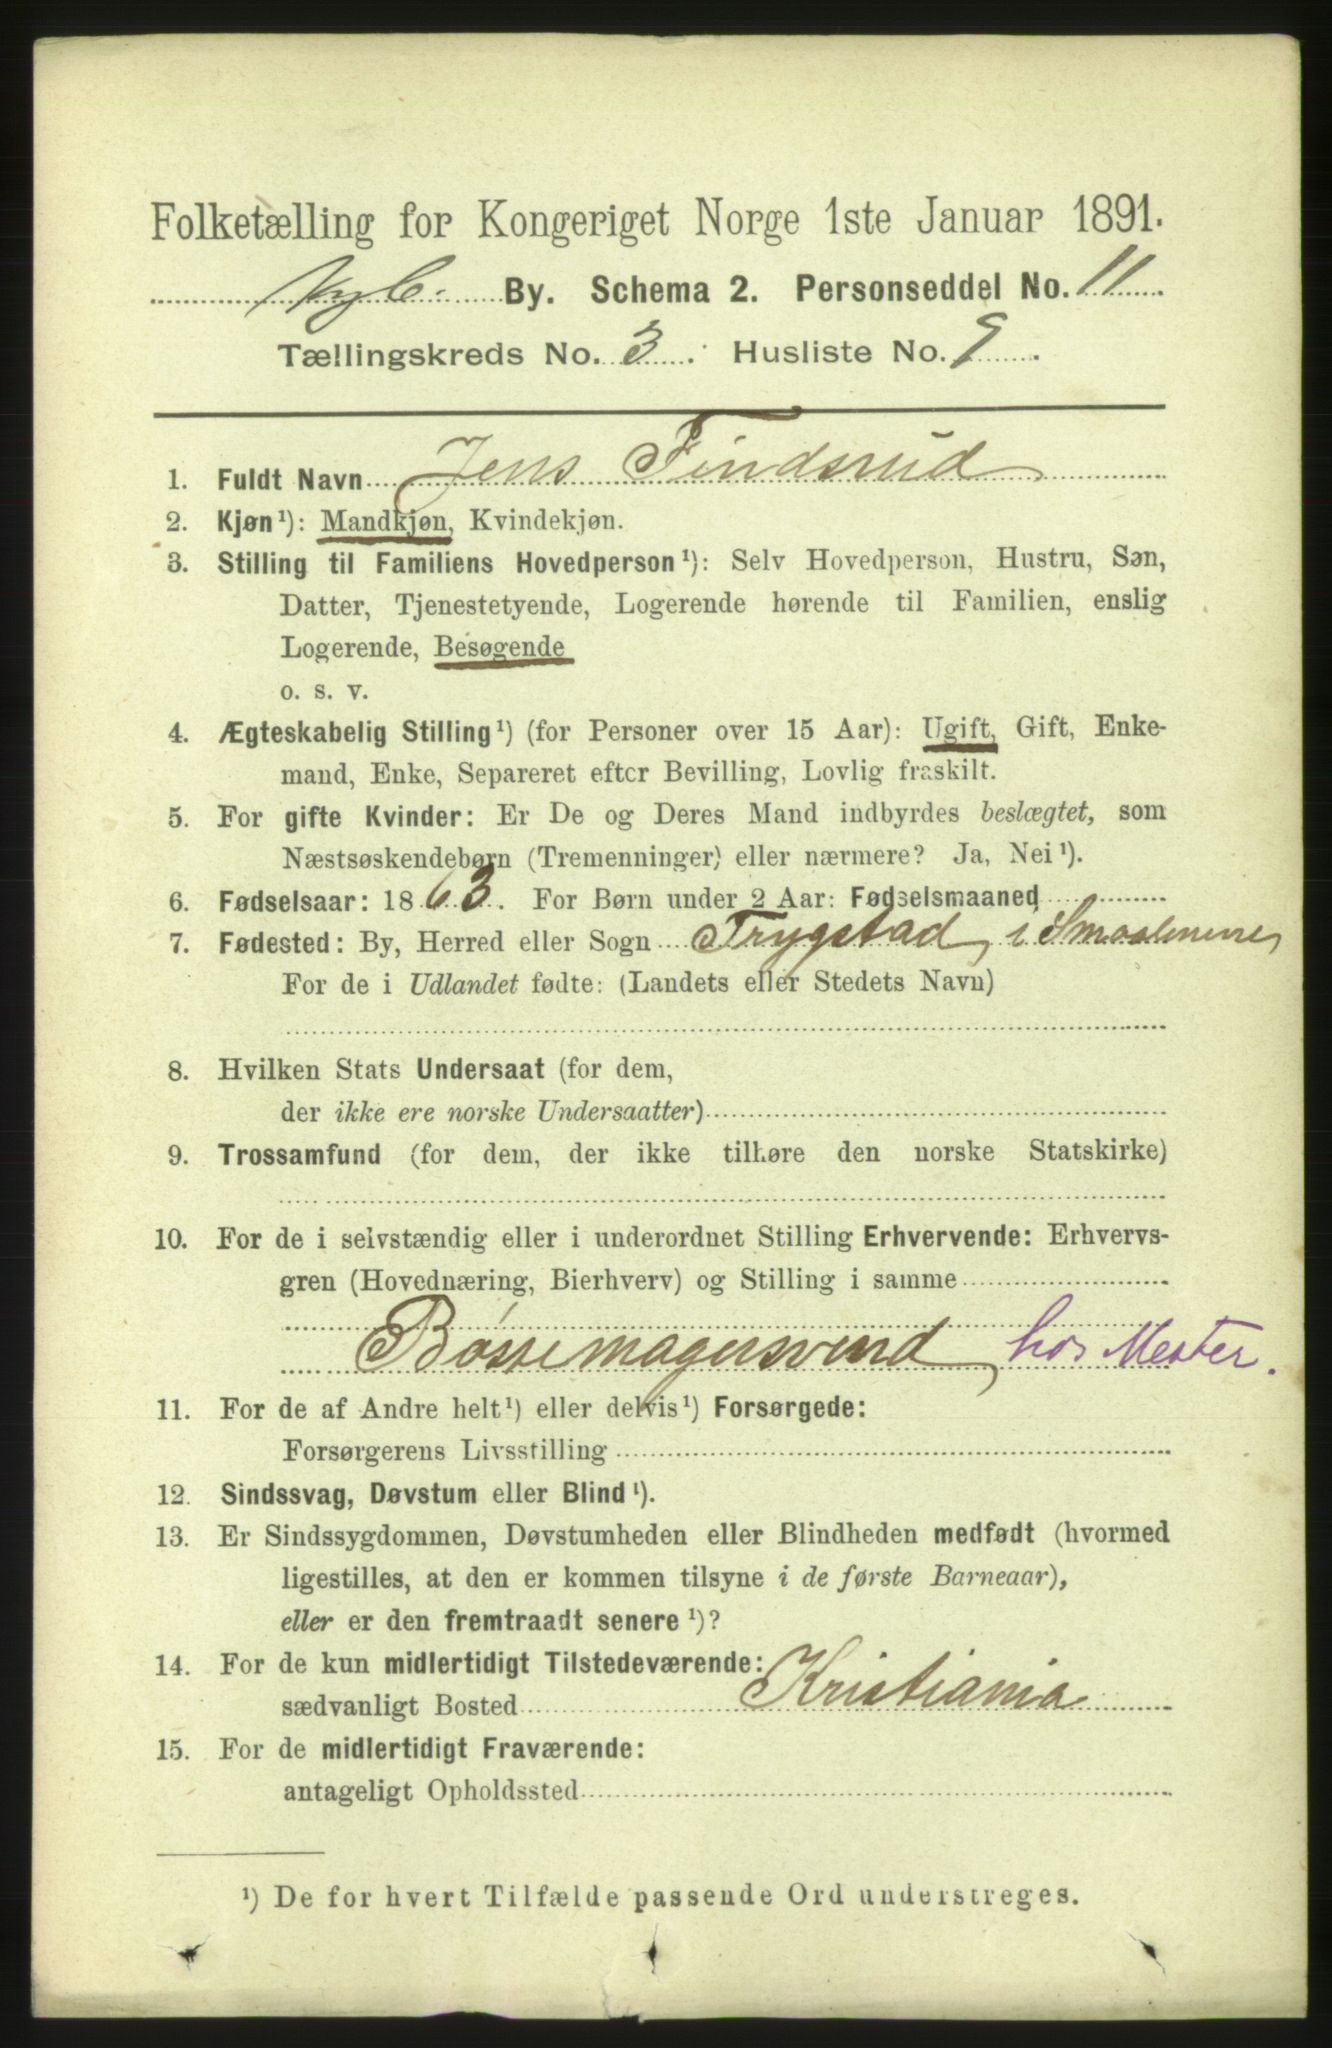 Folketælling for Kongeriget Norge 1ste Januar 1891.
By. Schema 2. Personseddel No. 11
Tællingskreds No. 3. Husliste No. 9.
1. Fuldt Navn Jens Findsrud
2. Kjøn¹): Mandkjøn, Kvindekjøn.
3. Stilling til Familiens Hovedperson¹): Selv Hovedperson, Hustru, Søn,
Datter, Tjenestetyende, Logerende hørende til Familien, enslig
Logerende, Besøgende
o. s. v.
4. Ægteskabelig Stilling¹) (for Personer over 15 Aar): Ugift, Gift, Enke-
mand, Enke, Separeret efter Bevilling, Lovlig fraskilt.
5. For gifte Kvinder: Er De og Deres Mand indbyrdes beslægtet, som
Næstsøskendebørn (Tremenninger) eller nærmere? Ja, Nei¹).
6. Fødselsaar: 1863. For Børn under 2 Aar: Fødselsmaaned
7. Fødested: By, Herred eller Sogn Trygstad, i Smaalenene
For de i Udlandet fødte: (Landets eller Stedets Navn)
8. Hvilken Stats Undersaat (for dem,
der ikke ere norske Undersaatter)
9. Trossamfund (for dem, der ikke tilhøre den norske Statskirke)
10. For de i selvstændig eller i underordnet Stilling Erhvervende: Erhvervs-
gren (Hovednæring, Bierhverv) og Stilling i samme
Bøssemagersvend, hos Mester.
11. For de af Andre helt¹) eller delvis¹) Forsørgede:
Forsørgerens Livsstilling
12. Sindssvag, Døvstum eller Blind¹).
13. Er Sindssygdommen, Døvstumheden eller Blindheden medfødt (hvormed
ligestilles, at den er kommen tilsyne i de første Barneaar),
eller er den fremtraadt senere¹)?
14. For de kun midlertidigt Tilstedeværende:
sædvanligt Bosted Kristiania
15. For de midlertidigt Fraværende:
antageligt Opholdssted
¹) De for hvert Tilfælde passende Ord understreges.